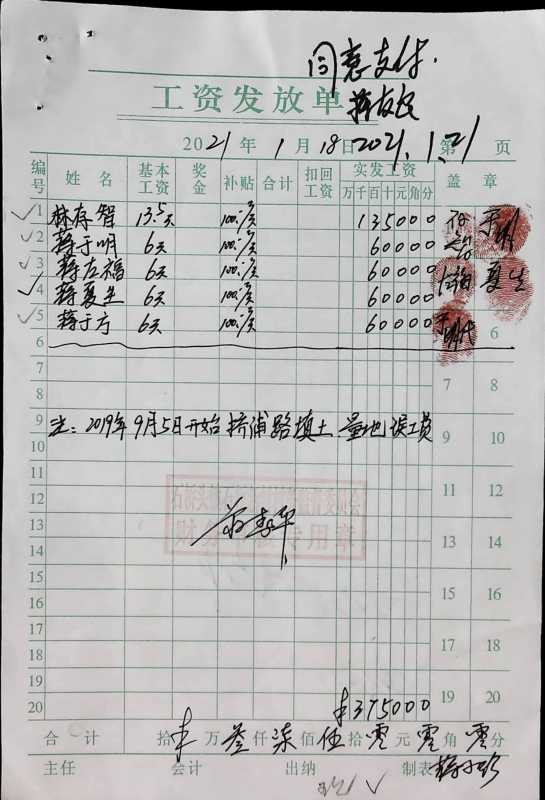 同意支付.
工资发放单
蒋友民
2021年1月18日 2021.1.21 第 页
编号 姓名 基本工资 奖金 补贴 合计 扣回工资 实发工资 盖章
万千百十元角分
1 林存智 13.5天 100元/天 135000
2 蒋于明 6天 100元/天 60000
3 蒋左福 6天 100元/天 60000
4 蒋夏生 6天 100元/天 60000
5 蒋于方 6天 100元/天 60000
6 6
7 7 8
8
9 注:2019年9月5日开始桥浦路填土.量地误工员 9 10
10
11 11 12
12
13 13 14
14
15 15 16
16
17 17 18
18
19 19 20
20 ¥375000
合计 拾¥万叁仟柒佰伍拾零元零角零分
主任 会计 出纳 制表
财务专用章